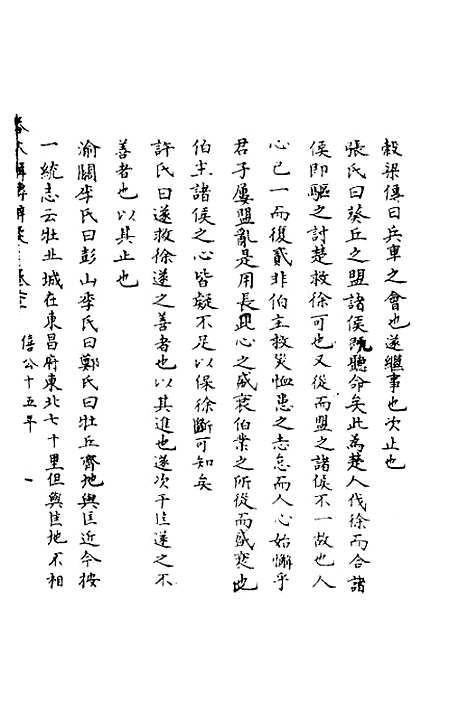 穀梁傳曰兵車之會也遂繼事也次止也
張氏曰葵丘之盟諸侯既聽命矣此為楚人伐徐而合諸
侯即驅之討楚救徐可也又從而盟之諸侯不一故也人
心已一而復貳非伯主救災恤患之志怠而人心始懈乎
君子屢盟亂是用長此心之盛衰伯業之所從而盛衰也
伯主諸侯之心皆疑不足以保徐斷可知矣
許氏曰遂救徐遂之善者也以其進也遂次于匡遂之不
善者也以其止也
渝關李氏曰彭山李氏曰鄭氏曰牡丘齊地與匡近今按
一統志云牡丘城在東昌府東北七十里但與匡地不相
春秋輯傳辨疑
僖公十五年
一